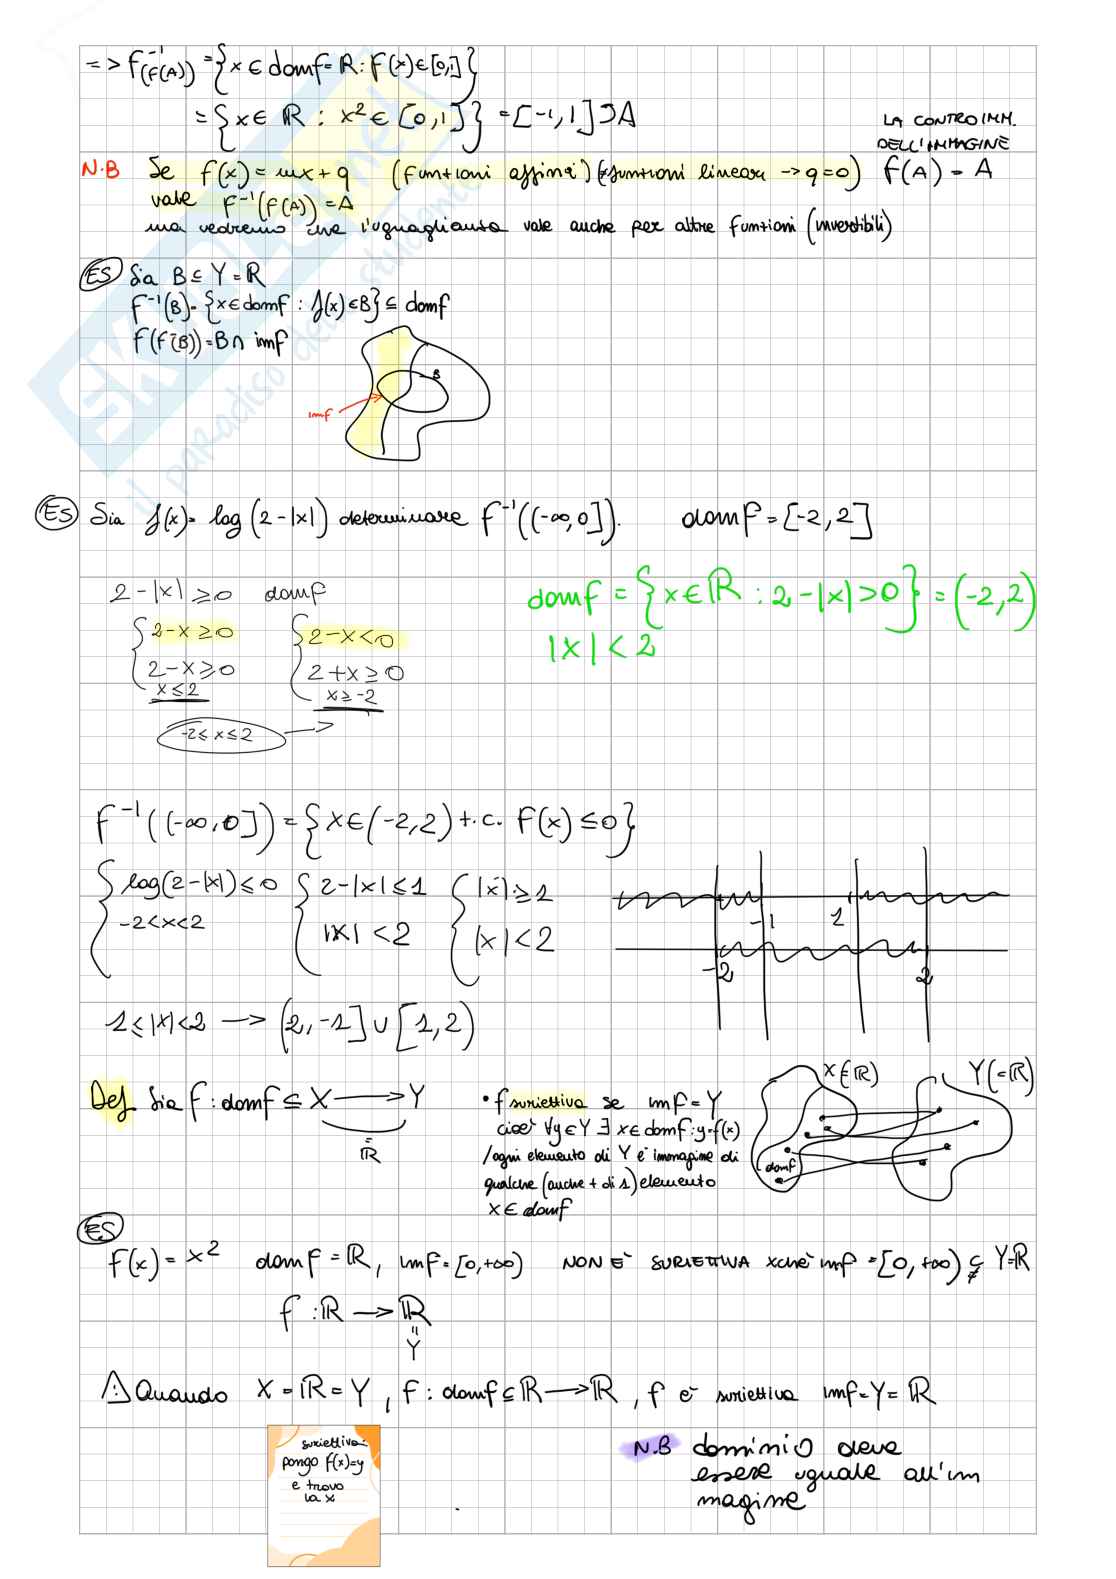 => f⁻¹(f(A)) = {x ∈ domf = ℝ : f(x) ∈ [0,1]}
= {x ∈ ℝ : x² ∈ [0,1]} = [-1,1] ⊃ A
LA CONTROIMM.
DELL'IMMAGINE
N.B Se f(x) = mx + q (funzioni affini) (≠funzioni lineari -> q=0) f(A) = A
vale f⁻¹(f(A)) = A
ma vedremo che l'uguaglianza vale anche per altre funzioni (invertibili)
ES Sia B ⊆ Y = ℝ
f⁻¹(B) = {x ∈ domf : f(x) ∈ B} ⊆ domf
f(f⁻¹(B)) = B ∩ imf
B
imf
ES Sia f(x) = log(2-|x|) determinare f⁻¹((-∞,0]). domf = [-2,2]
2-|x| ≥ 0 domf
domf = {x ∈ ℝ : 2-|x| > 0} = (-2,2)
|x| < 2
{2-x ≥ 0 {2-x < 0
2-x ≥ 0 2+x ≥ 0
x ≤ 2 x ≥ -2
-2 ≤ x ≤ 2
f⁻¹((-∞,0]) = {x ∈ (-2,2) t.c. f(x) ≤ 0}
{log(2-|x|) ≤ 0 {2-|x| ≤ 1 {|x| ≥ 1
-2 < x < 2 |x| < 2 |x| < 2
-1 1
-2 2
1 ≤ |x| < 2 -> (2,-1] ∪ [1,2)
Def Sia f : domf ⊆ X -> Y
= ℝ
• f suriettiva se imf = Y
cioè ∀y ∈ Y ∃ x ∈ domf : y = f(x)
/ogni elemento di Y è immagine di
qualche (anche + di 1) elemento
x ∈ domf
X(=ℝ) Y(=ℝ)
domf
ES
f(x) = x² domf = ℝ, imf = [0,+∞) NON È SURIETTIVA xchè imf = [0,+∞) ⊊ Y=ℝ
f : ℝ -> ℝ
=
Y
⚠ Quando X = ℝ = Y, f : domf ⊆ ℝ -> ℝ, f è suriettiva imf = Y = ℝ
suriettiva:
pongo f(x)=y
e trovo
la x
N.B dominio deve
essere uguale all'im
magine
SKUOLA.net
il paradiso dello studente